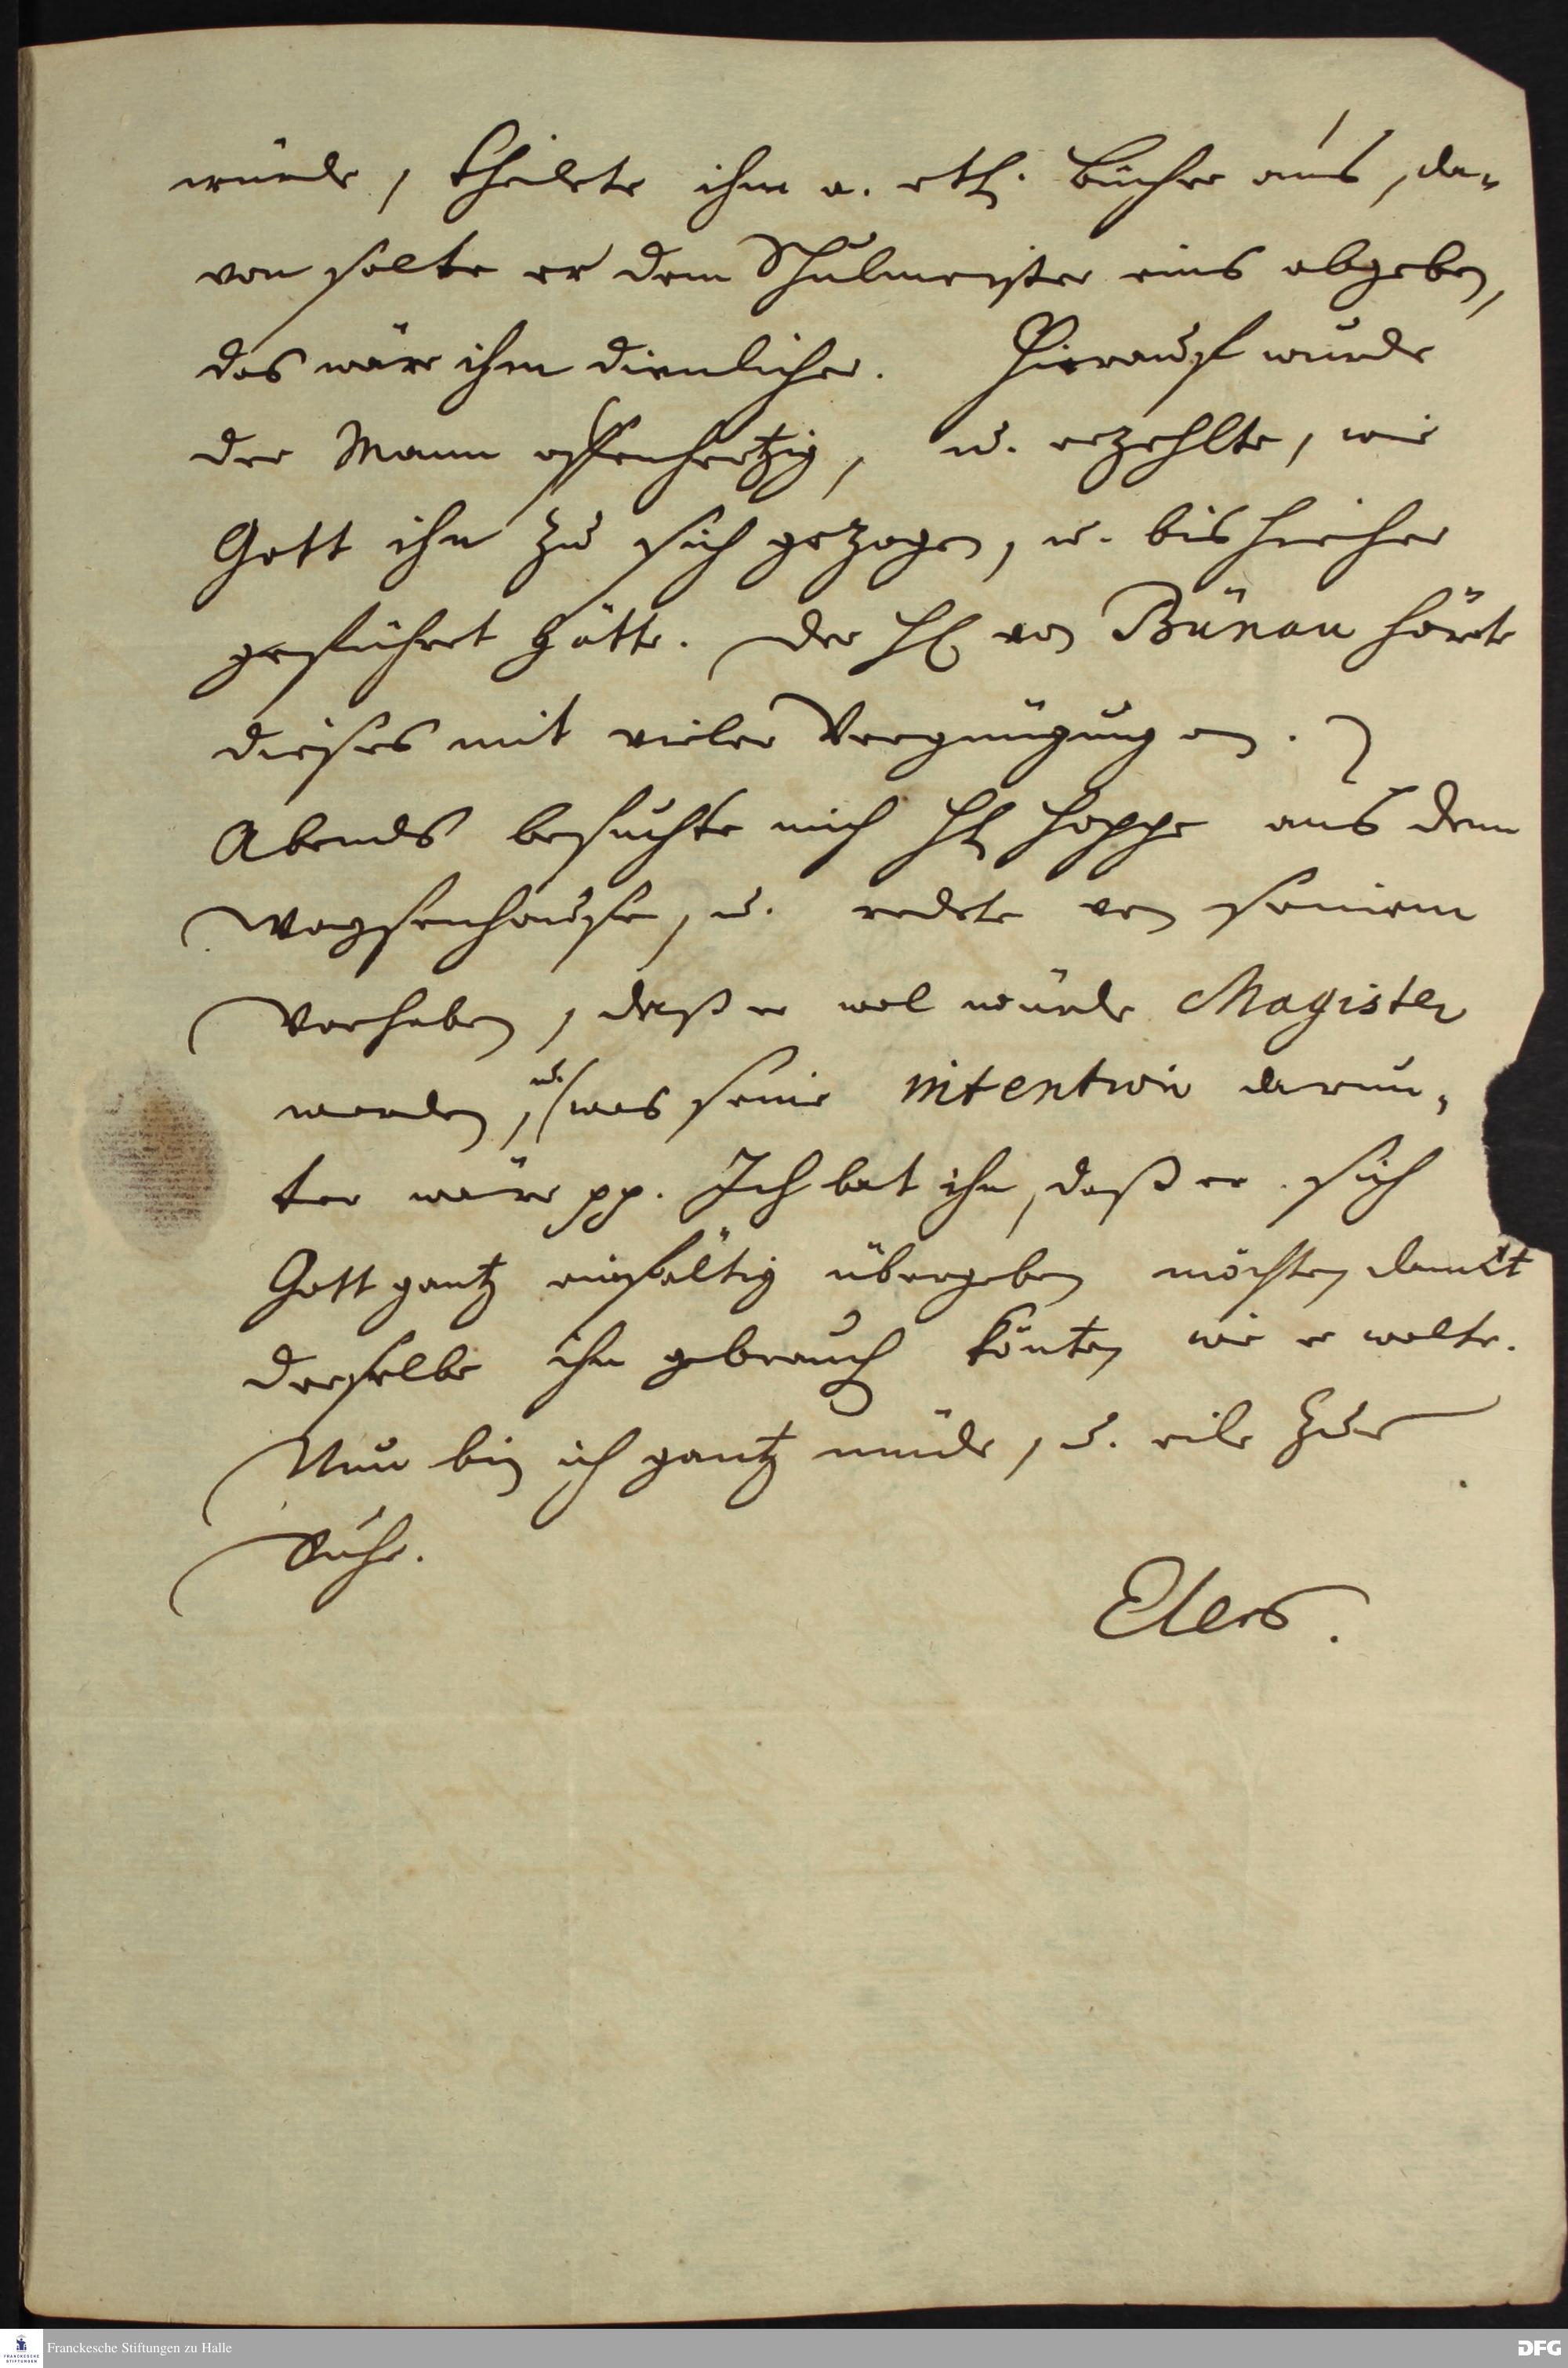 würde, theilete ihm a. etl. bücher aus, da-
von solte er dem Schulmeister eins abgeben,
das wäre ihm dienlicher. Hierauf wurde
der Mann offenhertzig, u. erzehlte, wie
Gott ihn zu sich gezogen, u. bis hieher
geführet hätte. Der H. von Bünau hörete
dieses mit vieler Vergnügung an.
Abends besuchte mich H. Hoppe aus dem
Waysenhause, u. redete von seinem
Vorhaben, daß er wol würde Magister
werden, u. was seine intention darun-
ter wäre pp. Ich bat ihn, daß er sich
Gott gantz einfältig übergeben möchte, damit
derselbe ihn gebrauchen könte, wie er wolte.
Nun bin ich gantz müde, u. eile zur
Ruhe.
Elers.
Franckesche Stiftungen zu Halle
DFG